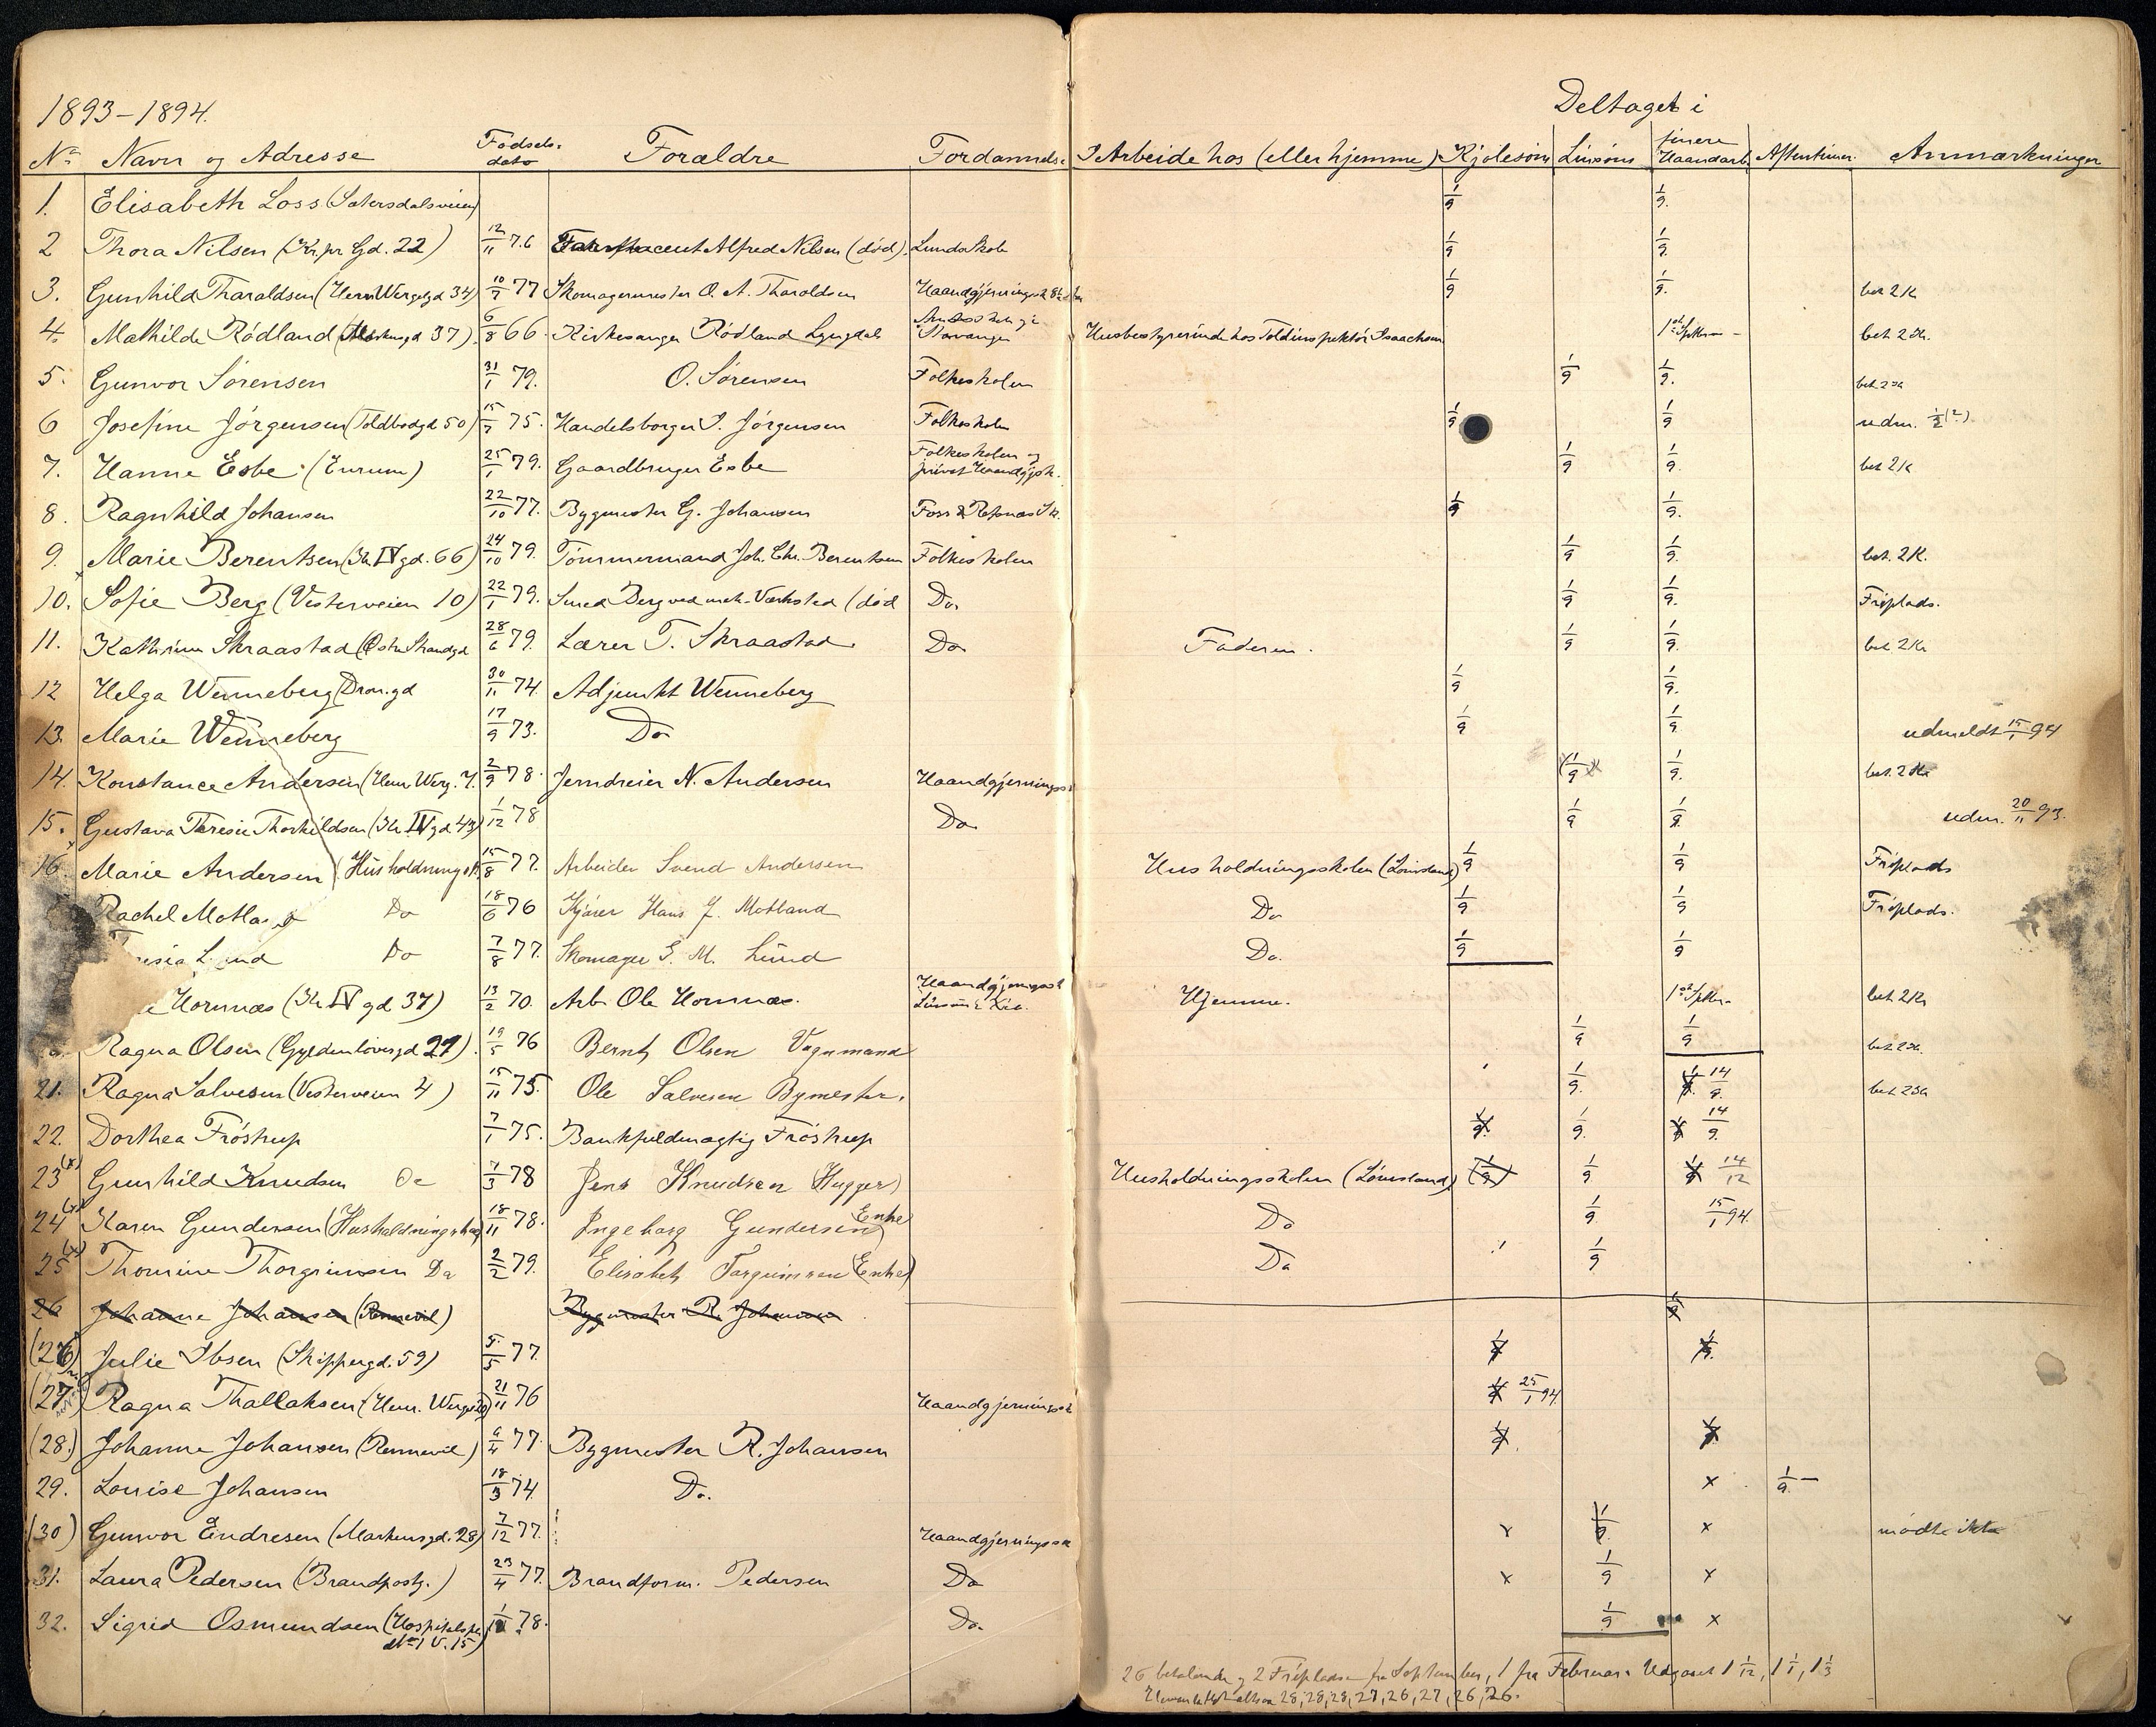 1893-1894.
Deltaget i
No Navn og Adresse Fødselsdato Forældre Fordannelse I Arbeide hos (eller hjemme) Kjolesøm Linsøm finere Haandarb. Aftentimer. Anmærkninger
1. Elisabeth Loss (Sætersdalsveien) 1/9 1/9.
2 Thora Nilsen (Kr. pr Gd. 22) 12/11 76 Alfred Nilsen (død). Lunds skole 1/9 1/9.
3. Gunhild Tharaldsen (Henr Wergelgd 34) 10/7 77 Skomagermester O. A. Tharaldsen 1/9 1/9. bet 2 K
4. Mathilde Rødland (Markensgd 37) 6/8 66. Kirkesanger Rødland Lyngdal Stavanger Husbestyrerinde hos Toldinspektør Isaachsen 1ste Septbr - bet 2 Kr.
5. Gunvor Sørensen 31/1 79. O. Sørensen Folkeskolen 1/9 1/9. bet 2 Kr
6 Josefine Jørgensen (Toldbodgd 50) 15/7 75. Handelsborger J. Jørgensen Folkeskolen 1/9 1/9 udm. 1/2 (?)
7. Hanne Esbe (Eurum) 25/1 79. Gaardbruger Esbe Folkeskolen og privat Haandgjsk. 1/9 1/9. bet 2 K
8. Ragnhild Johansen 22/10 77. Bygmester G. Johansen Foss & Refsnæs Sk. 1/9 1/9.
9. Marie Berentsen (Kr. IV gd. 66) 24/10 79. Tømmermand Joh. Chr. Berentsen Folkeskolen 1/9 1/9. bet. 2 K.
10. Sofie Berg (Vesterveien 10) 22/1 79. Smed Berg ved mek. Værksted (død Do. 1/9 1/9. Friplads.
11. Kathrine Skraastad (Østre Strandgd 28/6 79. Lærer T. Skraastad. Do Faderen. 1/9 1/9. bet 2 Kr
12 Helga Wenneberg (Dron. gd 30/11 74. Adjunkt Wenneberg 1/9 1/9.
13. Marie Wenneberg 17/9 73. Do 1/9 1/9 udmeldt 15/1 94
14. Konstance Andersen (Henr Werg. 7. 2/9 78. Jerndreier N. Andersen Haandgjernings (1/9 x 1/9. bet. 2 Kr
15. Gustava Theresie Thorkildsen (Kr IV gd 43) 1/12 78 Do 1/9 1/9. udm. 20/11 93.
16. Marie Andersen (Husholdningssk. 15/8 77. Arbeider Svend Andersen Husholdningsskolen (Lømsland) 1/9 1/9 Friplads
Rachel Motla d Do 18/6 76 Kjører Hans J. Motland Do 1/9 1/9 Friplads.
esia L nd Do 7/8 77. Skomager G. M. Lund Do. 1/9 1/9
e Hornnæs (Kr IV gd 37) 13/2 70. Arb. Ole Hornnæs. Haandgjerningssk Linsøm i Xia. Hjemme. 1ste Septbr bet 2 Kr
Ragna Olsen (Gyldenløvesgd 29) 19/5 76 Bernt Olsen Vognmand 1/9 1/9 bet 2 Kr.
21. Ragna Salvesen (Vesterveien 4) 15/11 75. Ole Salvesen Bymester. 1/9. 14/9. bet 2 Kr
22. Dorthea Frøstrup 7/1 75. Bankfuldmægtig Frøstrup 1/9. 1/9. 1/9 14/9.
23 (x) Gunhild Knudsen Do 7/3 78 Jens Knudsen (Hugger) Husholdningsskolen (Lømsland) (1/9) 1/9 1/9 14/12
24 (x) Karen Gundersen (Husholdningsskog 18/11 78. Ingeborg Gundersen Enke) Do 1/9. 15/1 94.
25 (x) Thomine Thorgrimsen Do 2/2 79. Elisabeth Torgrimsen (Enke) Do 1/9
26 Johanne Johansen (Rennevil) Bygmester R. Johansen 1/9
(26) Julie Ibsen (Skippergd. 59) 5/5 77. 1/9 1/9.
(27) Ragna Thallaksen (Henr. Werg. 20) 21/11 76 Haandgjerningssk 1/9 25/1 94.
(28.) Johanne Johansen (Rennevil) 6/4 77. Bygmester R. Johansen 1/9. 1/9
29. Louise Johansen 18/3 74 Do. x 1/9 -
(30) Gunvor Endresen (Markensgd. 28) 7/12 77. Haandgjerningssk x 1/9. x mødte ikke
31. Laura Pedersen (Brandpostg.) 23/4 77. Brandform. Pedersen Do x 1/9 x
32. Sigrid Osmundsen (Hospitals No 1 V. 15) 78. Do. 1/9 x
26 betalende og 2 Friplads fra September, 1 fra Februar. Udgaaet 1 1/12, 1 1/1, 1 1/3
28, 28, 28, 27, 26, 27, 26, 26.